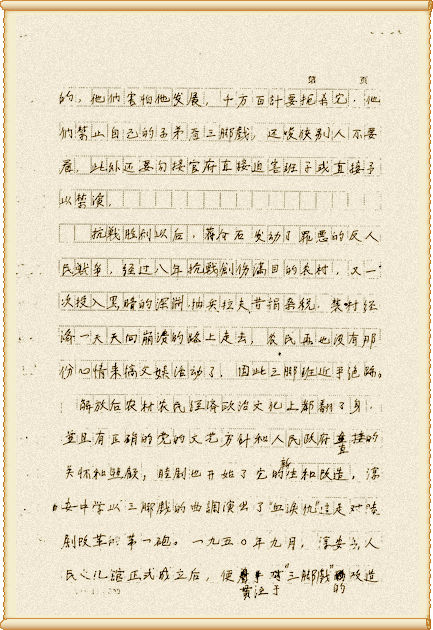 第 页
的，他们害怕他发展，千方百计要扼杀它．他
们禁止自己的子弟看三脚戲，还唆使别人不要
看，此外还要勾接官府直接迫害班子或直接予
以禁演．
抗戰胜利以后，蒋介石发动了罪恶的反人
民戰争，经过八年抗戰創伤满目的农村，又一
次投入黑暗的深渊．抽兵拉夫，苛捐杂税，農村经
济一天天向崩溃的路上走去，农民再也没有那
份心情来搞文娱活动了，因此三脚班近乎绝跡。
解放后农村农民经济政治文化上都翻了身，
並且有正确的党的文艺方針和人民政府直接的
关怀和照顧，睦剧也开始了它的新生和改造，淳
安中学以三脚戲的曲調演出了"血淚仇"这是对睦
剧改革的第一砲。一九五〇年九月，淳安县人
民文化館正式成立后，便对"三脚戲"的改造
黄注于